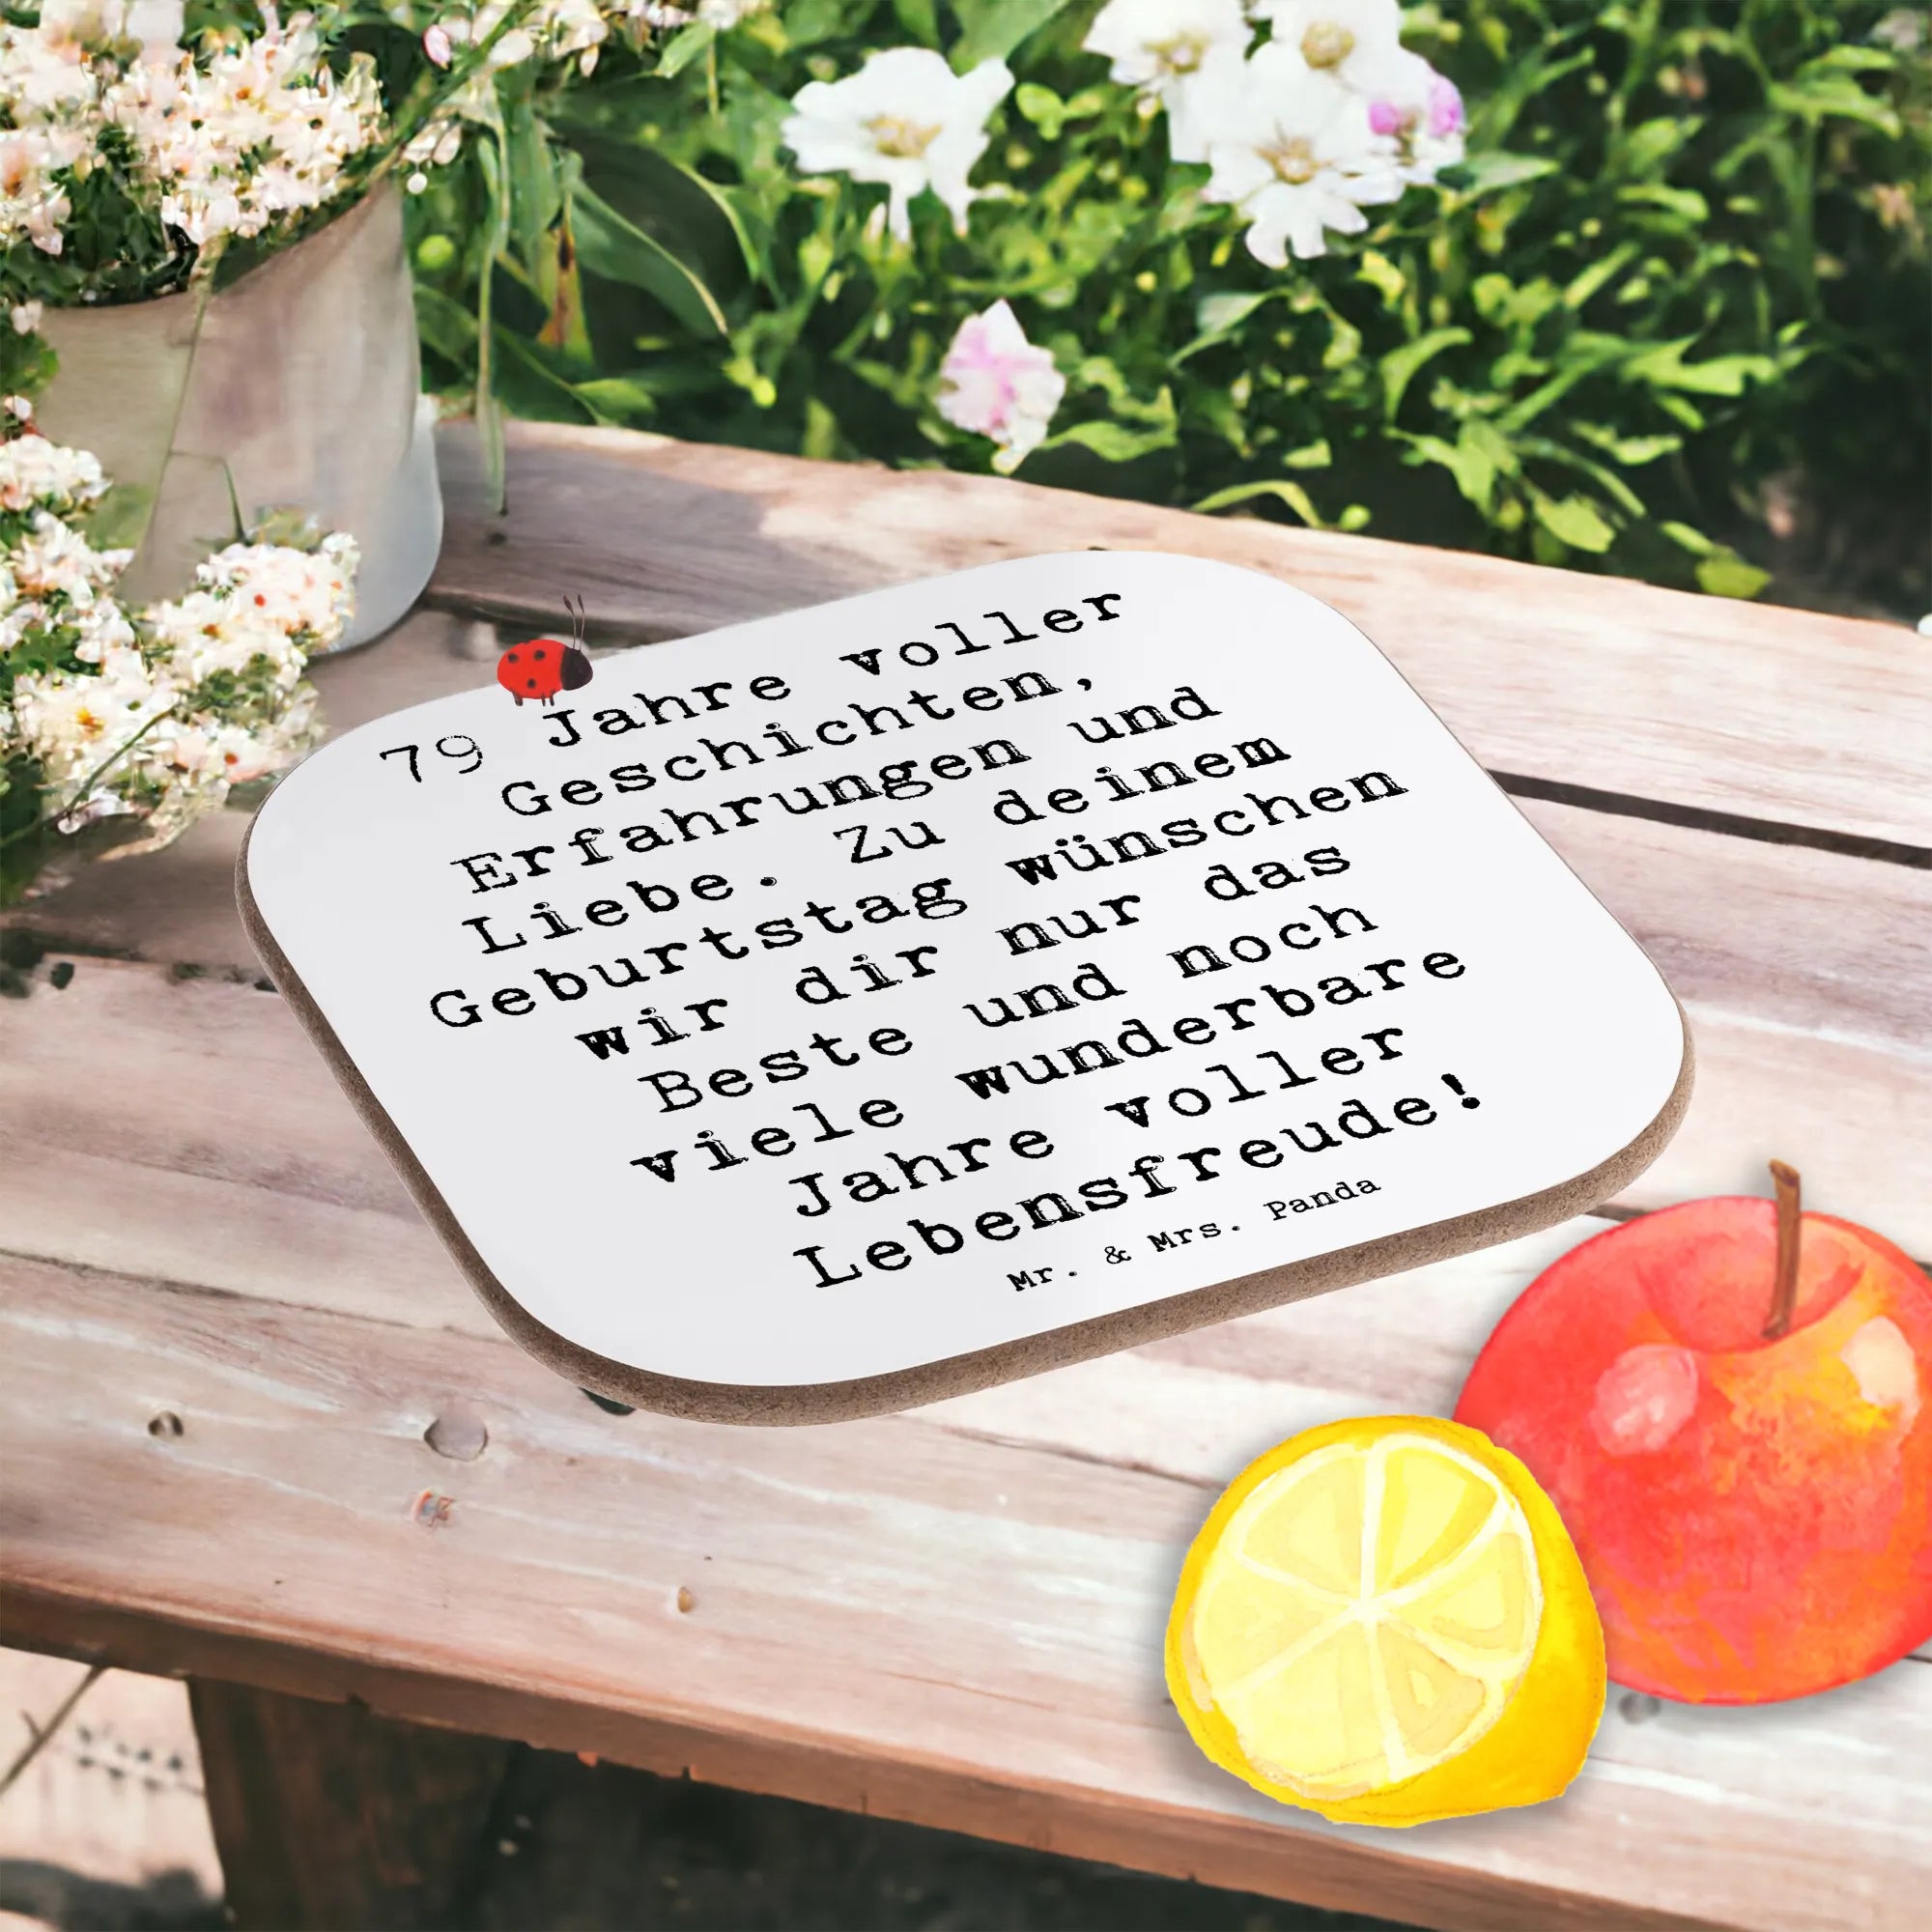 79 Jahre voller
Geschichten,
Erfahrungen und
Liebe. Zu deinem
Geburtstag wünschen
wir dir nur das
Beste und noch
viele wunderbare
Jahre voller
Lebensfreude!
Mr. & Mrs. Panda